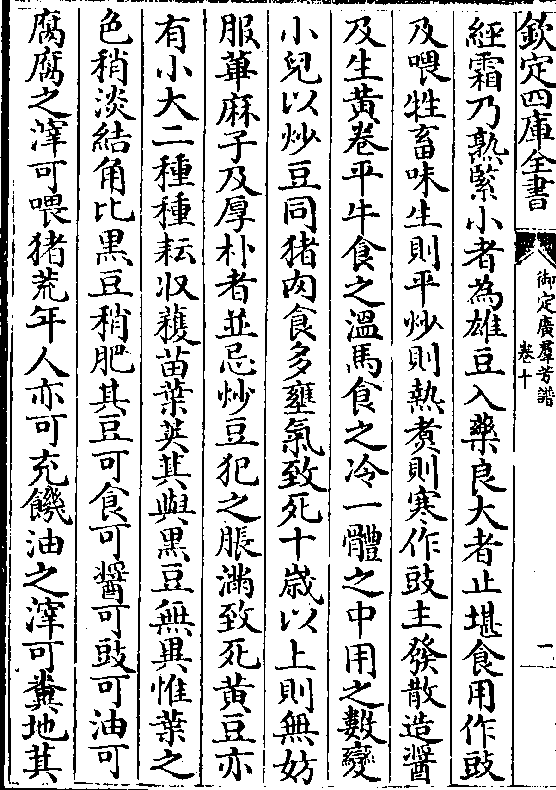 欽定四庫全書
御定廣羣芳譜
卷十
二
經霜乃熟緊小者為雄豆入藥良大者止堪食用作豉
及喂牲畜味生則平炒則熱煮則寒作豉主發散造醬
及生黃卷平牛食之溫馬食之冷一體之中用之數變
小兒以炒豆同猪肉食多壅氣致死十歲以上則無妨
服萆麻子及厚朴者並忌炒豆犯之脹滿致死黃豆亦
有小大二種種耘收穫苗葉莢萁與黑豆無異惟葉之
色稍淡結角比黑豆稍肥其豆可食可醬可豉可油可
腐腐之滓可喂猪荒年人亦可充饑油之滓可糞地萁